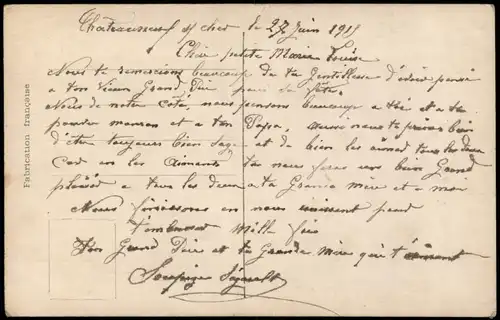 Chateauneuf s/ cher le 27 Juin 1915
Cher petite Marie Louise
Nous te remercions beaucoup de ta Gentillesse d'avoir pensé
a ton vieux Grand Pére pour sa fête,
Nous de notre coté, nous pensons beaucoup a toi et a ta
maman et a ton Papa, aussi nous te prions bien
d'être toujours bien sage et de bien les aimer tous les deux
Car en les aimants tu nous feras un bien Grand
plaisir a tous les deux a ta Grande mère et a moi
Nous finissons en nous
mille fois
Ton Grand Pére et ta Grande mère qui t'aiment
Fabrication française